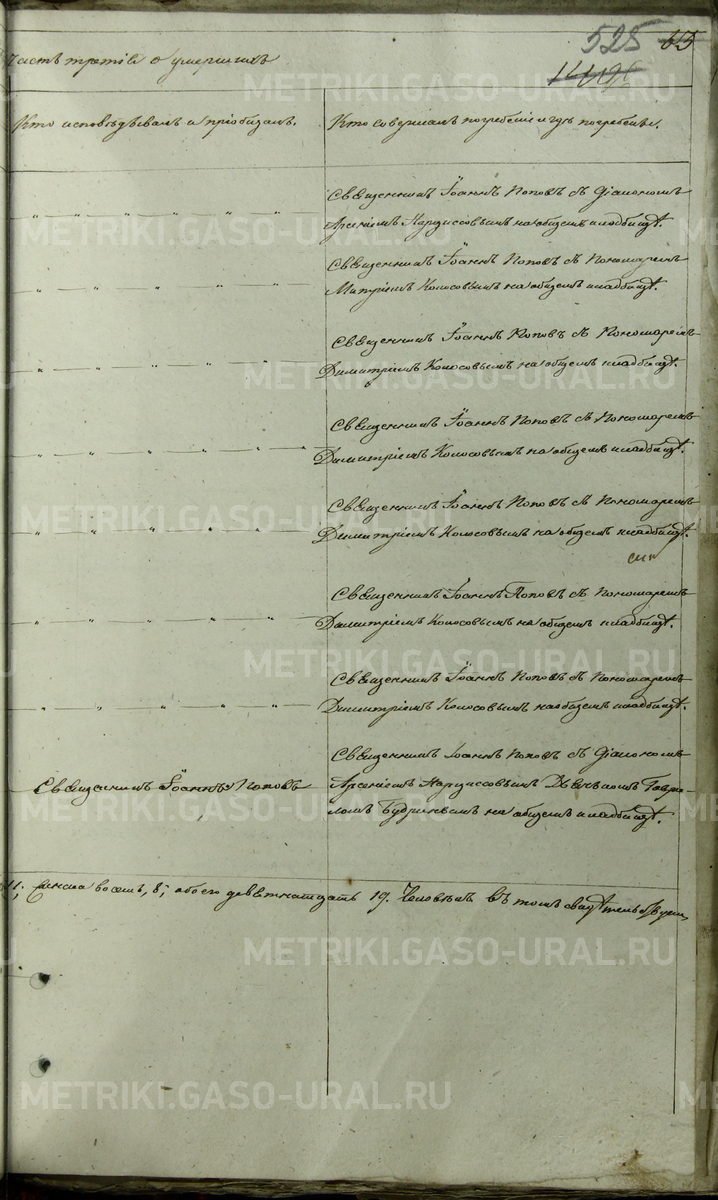 528 65
Часть третія о умершихъ
Кто исповѣдывалъ и пріобщалъ. Кто совершалъ погребеніе и гдѣ погребены.
Священникъ Іоаннъ Поповъ съ Діакономъ
Арсеніемъ Нарциссовымъ на общемъ кладбищѣ.
Священникъ Іоаннъ Поповъ съ Пономаремъ
Митріемъ Колосовымъ на общемъ кладбищѣ.
Священникъ Іоаннъ Поповъ съ Пономаремъ
Димитріемъ Колосовымъ на общемъ кладбищѣ.
Священникъ Іоаннъ Поповъ съ Пономаремъ
Димитріемъ Колосовымъ на общемъ кладбищѣ.
Священникъ Іоаннъ Поповъ съ Пономаремъ
Димитріемъ Колосовымъ на общемъ кладбищѣ.
Священникъ Іоаннъ Поповъ съ Пономаремъ
Димитріемъ Колосовымъ на общемъ кладбищѣ.
Священникъ Іоаннъ Поповъ съ Пономаремъ
Димитріемъ Колосовымъ на общемъ кладбищѣ.
Священникъ Іоаннъ Поповъ съ Діакономъ
Священникъ Іоаннъ Поповъ Арсеніемъ Нарциссовымъ Дьячкомъ Гаври-
ломъ Будринымъ на общемъ кладбищѣ.
11; женска восемь, 8; обоего девятнатцать 19. Человѣкъ въ томъ свидѣтельствуемъ
METRIKI.GASO-URAL.RU